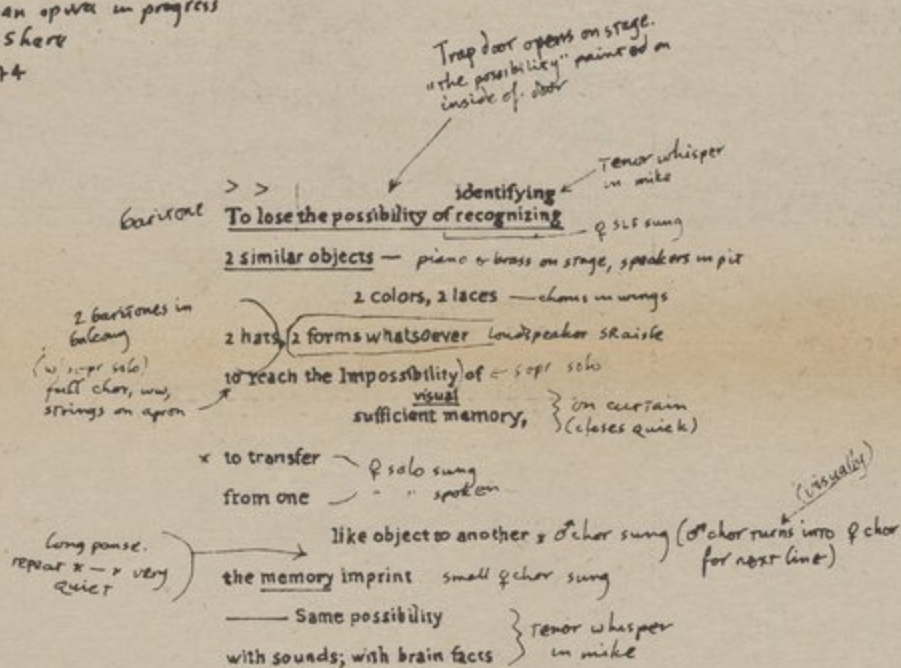 an opera in progress
Share
44
Trap door opens on stage.
"the possibility" painted on
inside of door
Tenor whisper
in mike
> >
identifying
baritone To lose the possibility of recognizing
♀ solo sung
2 similar objects — piano & brass on stage, speakers in pit
2 colors, 2 laces — chorus in wings
2 baritones in
balcony
2 hats, 2 forms whatsoever loudspeaker SR aisle
(w/ sopr solo)
full chor, ww,
strings on apron
to reach the Impossibility of ← sopr solo
visual
sufficient memory,
on curtain
(closes quick)
x to transfer
♀ solo sung
from one " " spoken
(visually)
like object to another x ♂ chor sung (♂ chor turns into ♀ chor
for next line)
Long pause.
repeat x — x very
quiet
the memory imprint small ♀ chor sung
—— Same possibility
with sounds; with brain facts
Tenor whisper
in mike